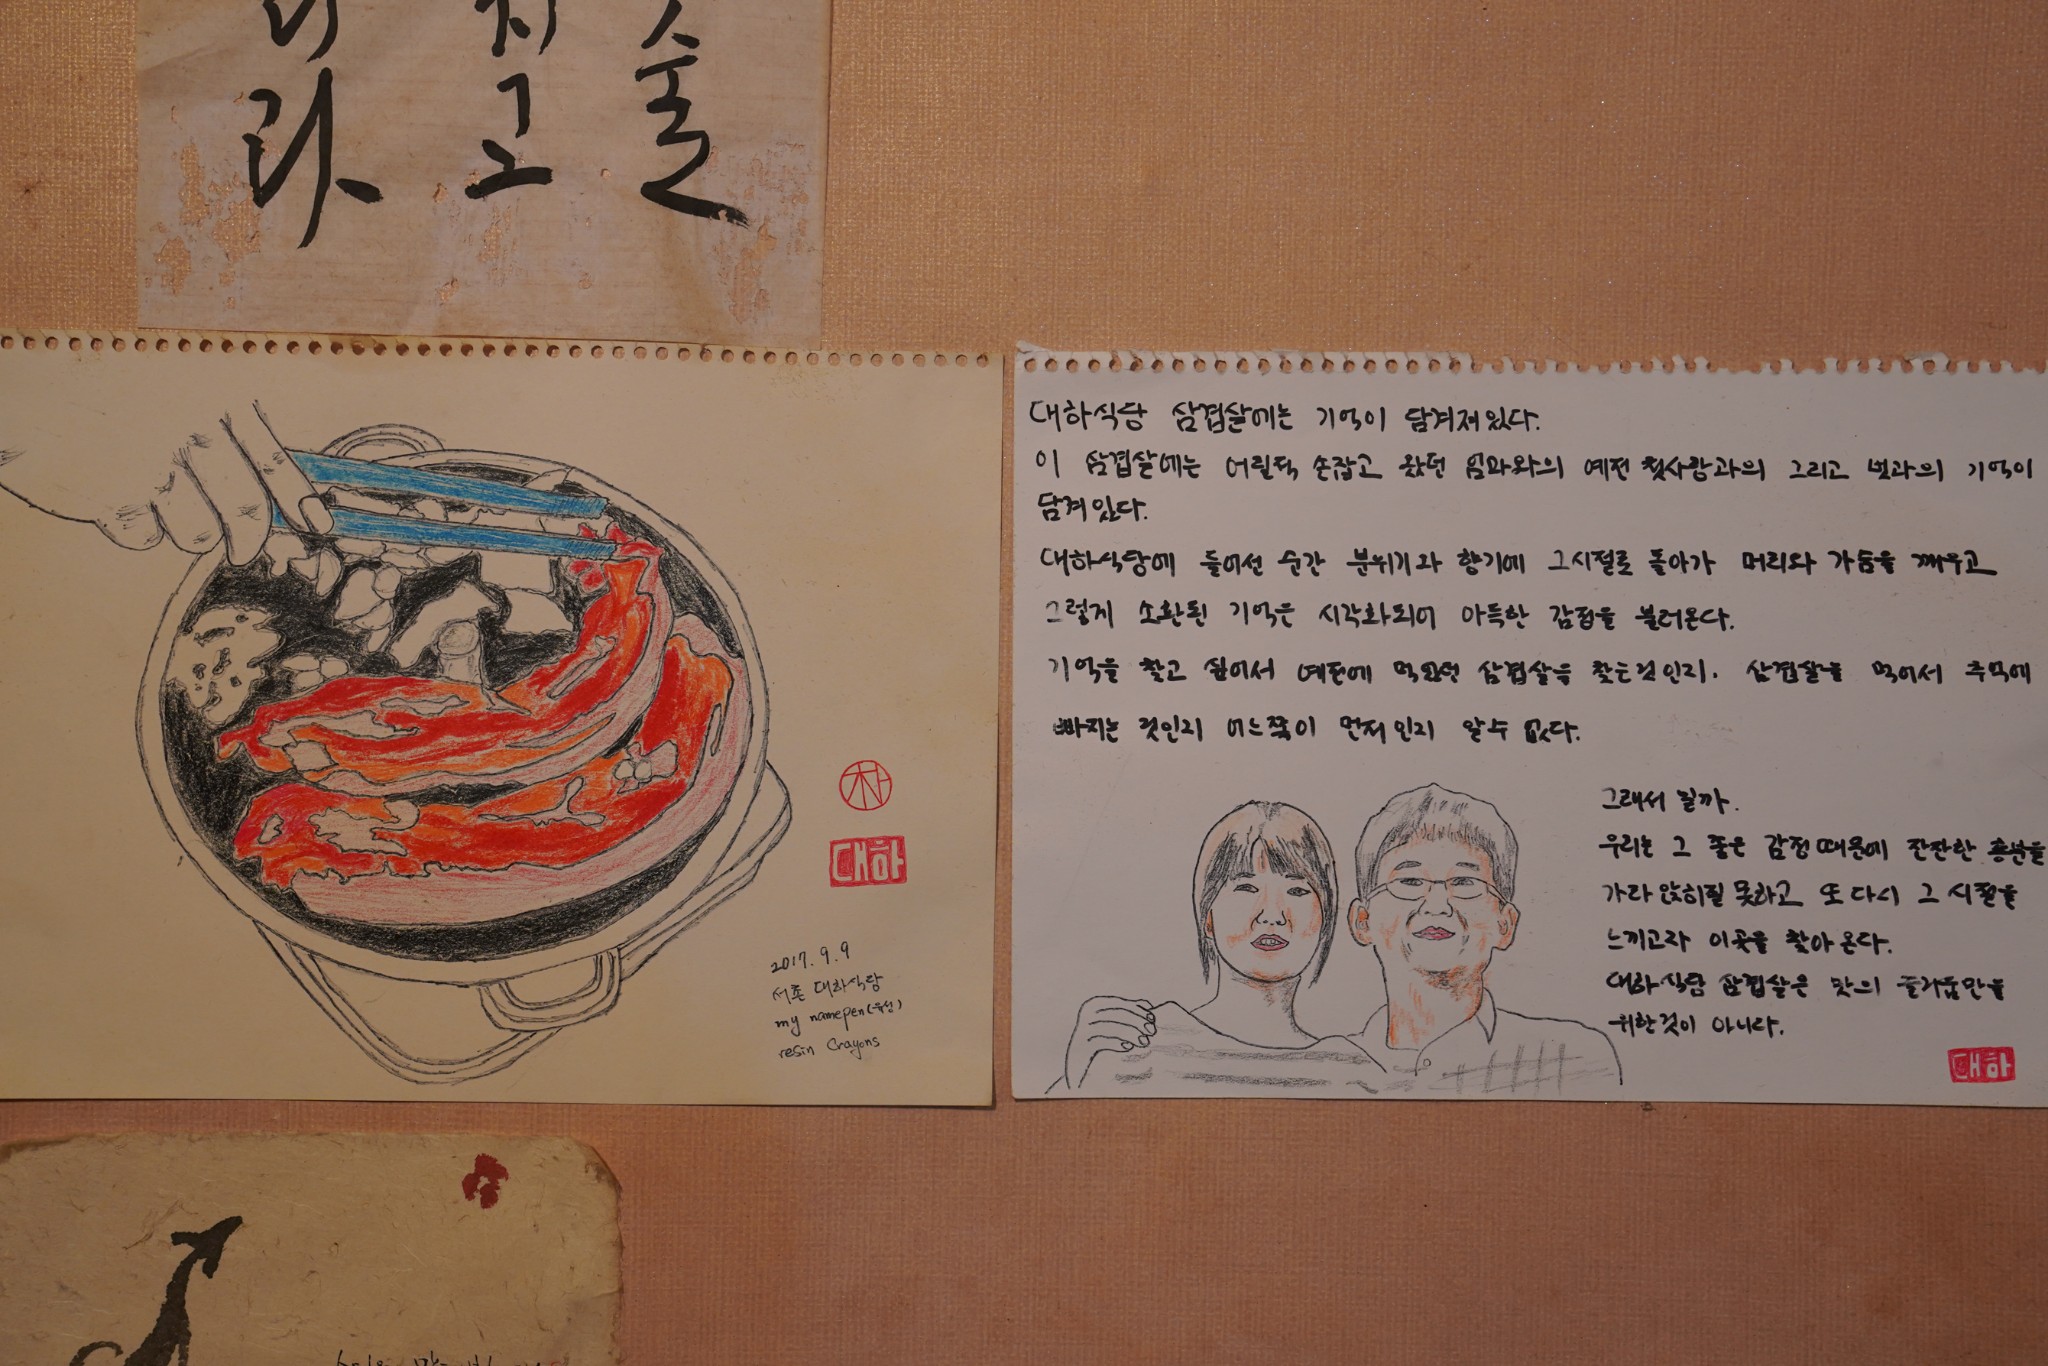 술
지고
리라
朴
대하
2017. 9. 9
서촌 대하식당
my namepen(유성)
resin Crayons
대하식당 삼겹살에는 기억이 담겨져있다.
이 삼겹살에는 어릴적 손잡고 왔던 엄마와의 예전 첫사랑과의 그리고 벗과의 기억이
담겨있다.
대하식당에 들어선 순간 분위기와 향기에 그시절로 돌아가 머리와 가슴을 깨우고
그렇게 소환된 기억은 시각화되어 아득한 감정을 불러온다.
기억을 찾고 싶어서 예전에 먹었던 삼겹살을 찾는것인지. 삼겹살을 먹어서 추억에
빠지는 것인지 어느쪽이 먼저인지 알수 없다.
그래서 일까.
우리는 그 좋은 감정때문에 잔잔한 흥분을
가라앉히질 못하고 또다시 그 시절을
느끼고자 이곳을 찾아온다.
대하식당 삼겹살은 맛의 즐거움만을
위한것이 아니다.
대하